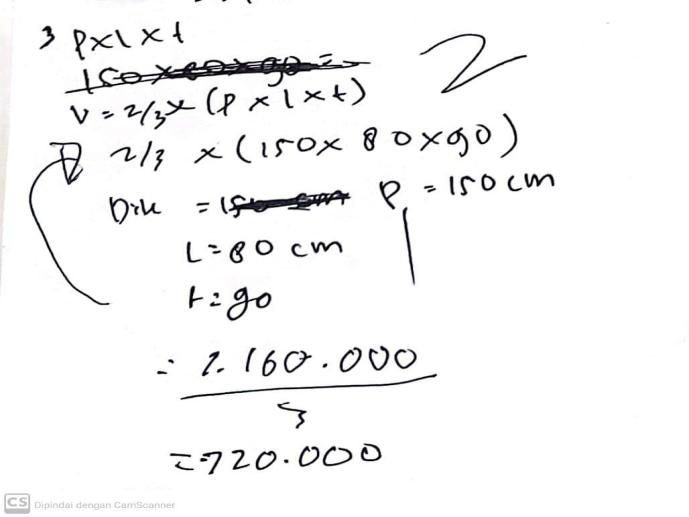 3 p x l x t
150 x 80 x 90 =
2
V = 2/3 x (p x l x t)
2/3 x (150 x 80 x 90)
Dik = 150 cm P = 150 cm
L = 80 cm
t = 90
= 2.160.000
3
= 720.000
CS Dipindai dengan CamScanner